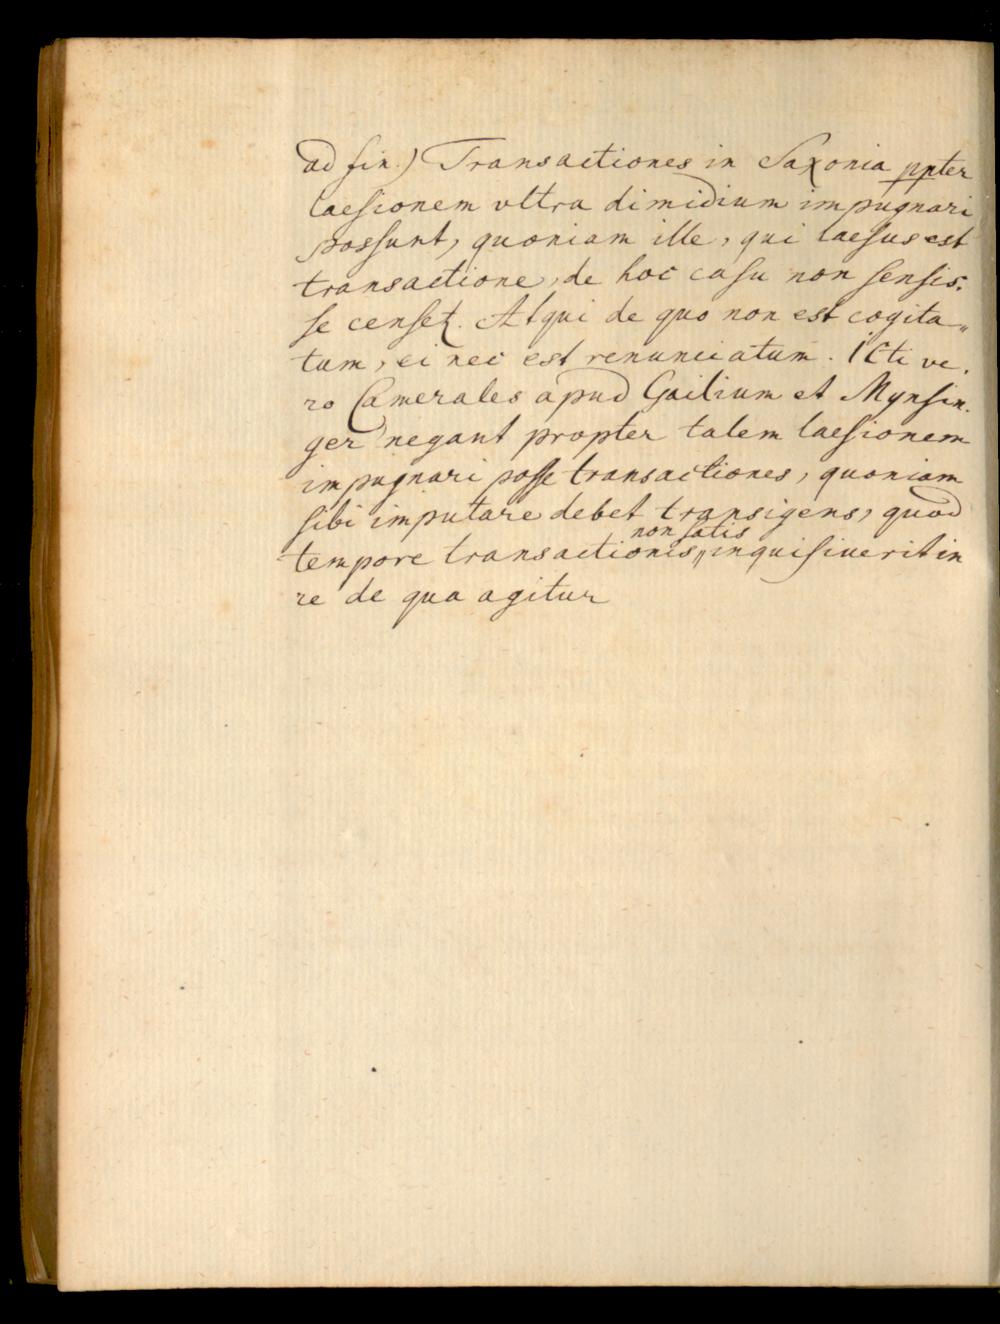 ad fin.) Transactiones in Saxonia ppter
laesionem vltra dimidium impugnari
possunt, quoniam ille, qui laesus est
transactione, de hoc casu non sensis-
se censet. Atqui de quo non est cogita„
tum, ei nec est renunciatum. ICti ve-
ro Camerales apud Gailium et Mynsin-
ger negant propter talem laesionem
impugnari posse transactiones, quoniam
sibi imputare debet transigens, quod
non satis
tempore transactionis„ inquisiverit in
re de qua agitur